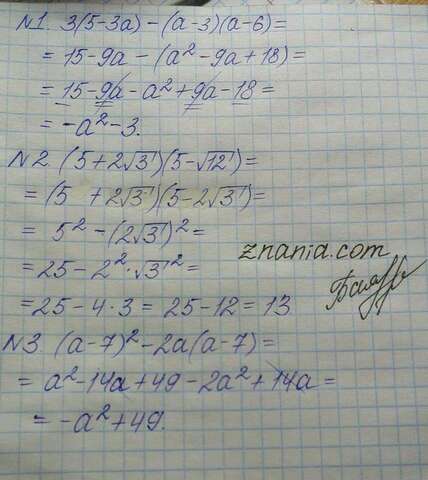 N1. 3(5-3a)-(a-3)(a-6)=
= 15-9a-(a²-9a+18)=
= 15-9a-a²+9a-18=
= -a²-3.
N2. (5+2√3)(5-√12)=
= (5 +2√3)(5-2√3)=
= 5²-(2√3)²=
= 25-2²·√3²=
= 25-4·3= 25-12= 13
znania.com
N3. (a-7)²-2a(a-7)=
= a²-14a+49-2a²+14a=
= -a²+49.